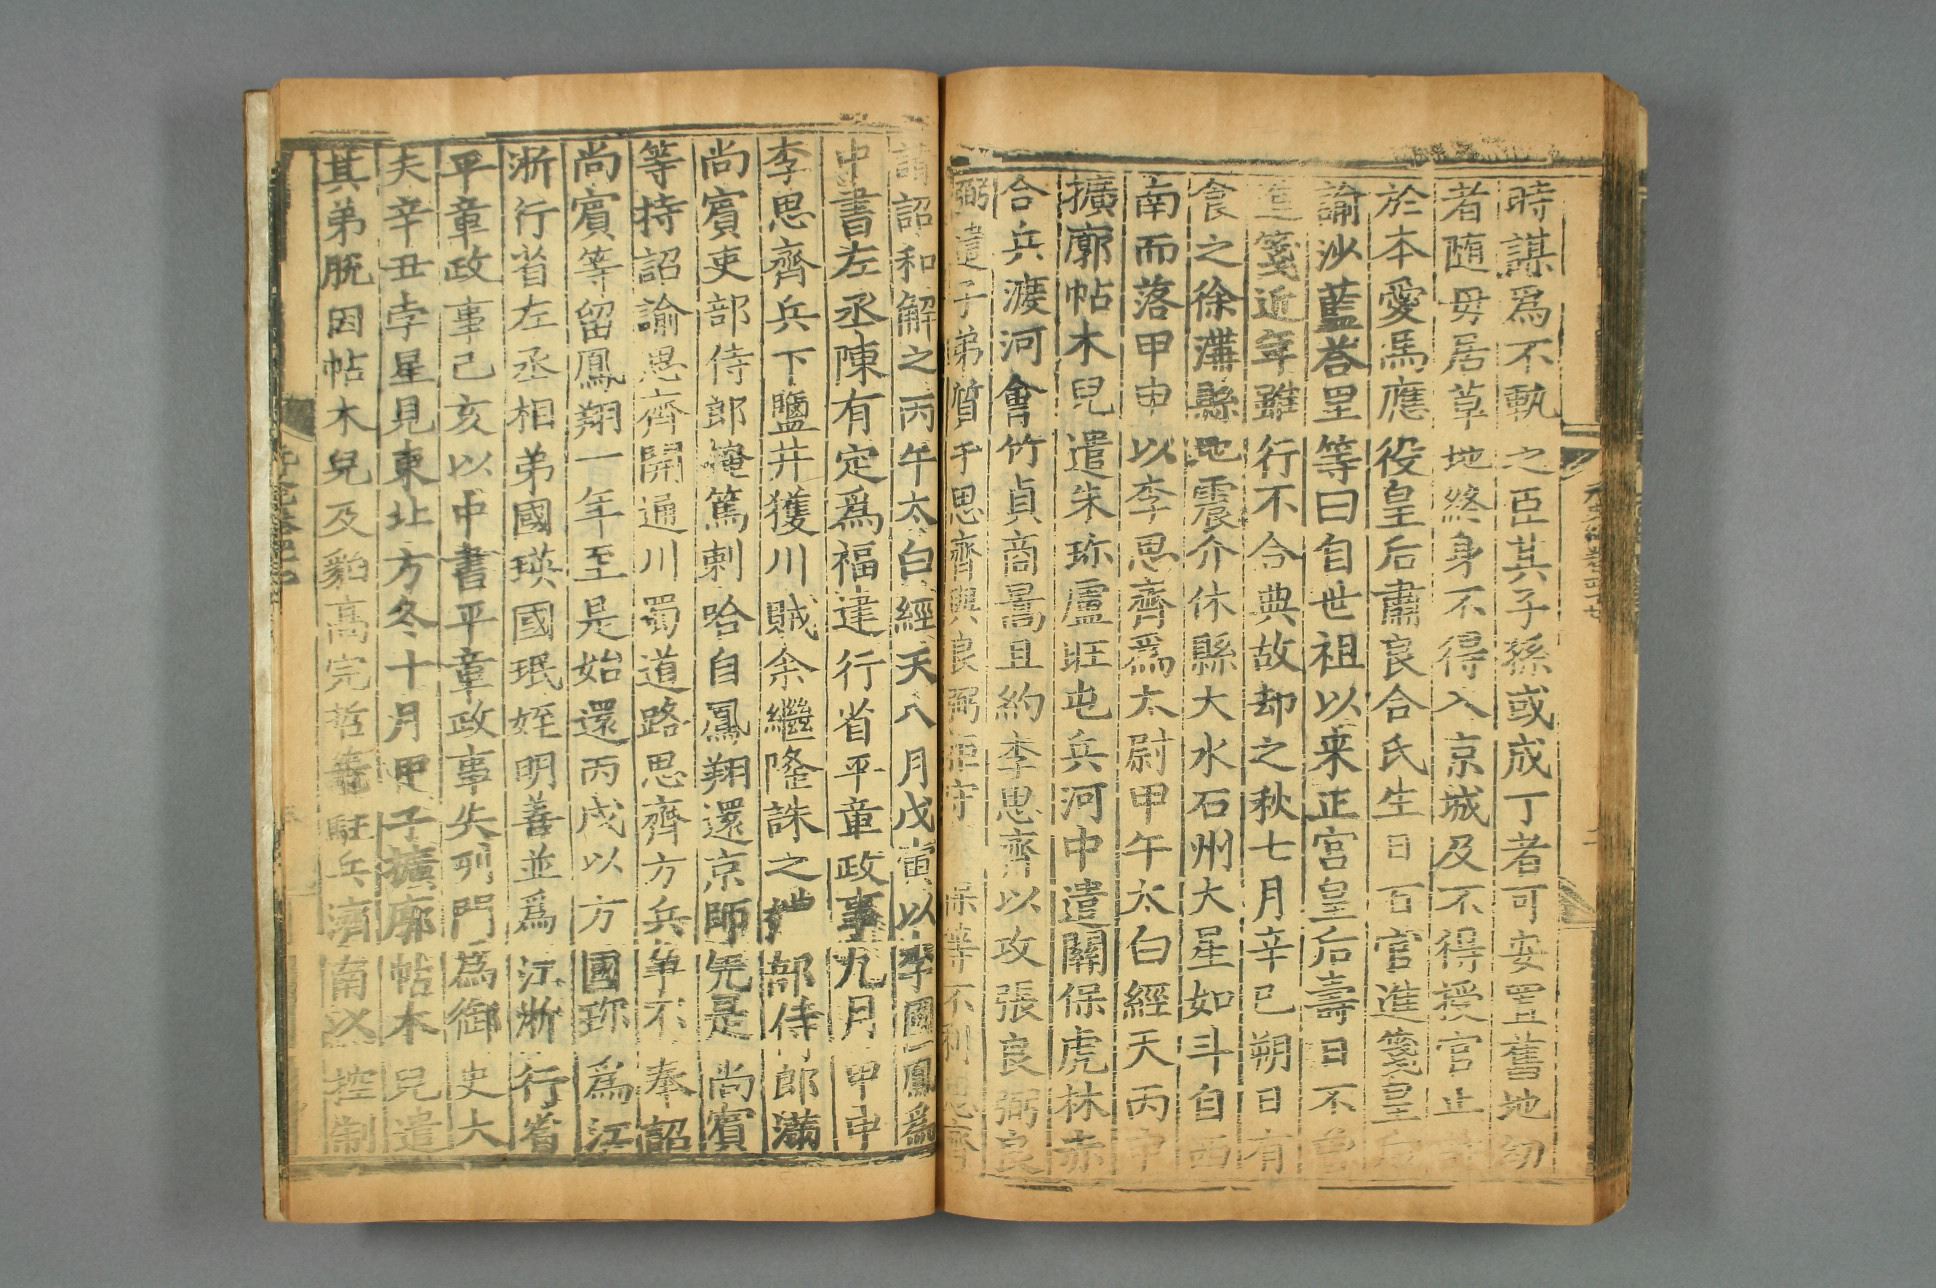 時謀爲不軌之臣其子孫或成丁者可安置舊地幼
者隨母居草地終身不得入京城及不得授官止許
於本愛馬應役皇后肅良合氏生日百官進箋皇后
諭沙藍荅里等曰自世祖以来正宮皇后壽日不曾
進箋近年雖行不合典故却之秋七月辛巳朔日有
食之徐溝縣地震介休縣大水石州大星如斗自西
南而落甲申以李思齊爲太尉甲午太白經天丙申
擴廓帖木兒遣朱珍盧旺屯兵河中遣關保虎林赤
合兵渡河會竹貞商暠且約李思齊以攻張良弼良
弼遣子弟質于思齊與良弼拒守 保等不利思齊
請詔和解之丙午太白經天八月戊寅以李國鳳爲
中書左丞陳有定爲福建行省平章政事九月甲申
李思齊兵下鹽井獲川賊余繼隆誅之 部侍郎滿
尚賓吏部侍郎㛪篤剌哈自鳳翔還京師先是尚賓
等持詔諭思齊開通川蜀道路思齊方兵爭不奉詔
尚賓等留鳳翔一年至是始還丙戌以方國珍爲江
浙行省左丞相弟國瑛國珉姪明善並爲江浙行省
平章政事己亥以中書平章政事失列門爲御史大
夫辛丑孛星見東北方冬十月甲子擴廓帖木兒遣
其弟脫因帖木兒及貊高完哲等駐兵濟南以控制